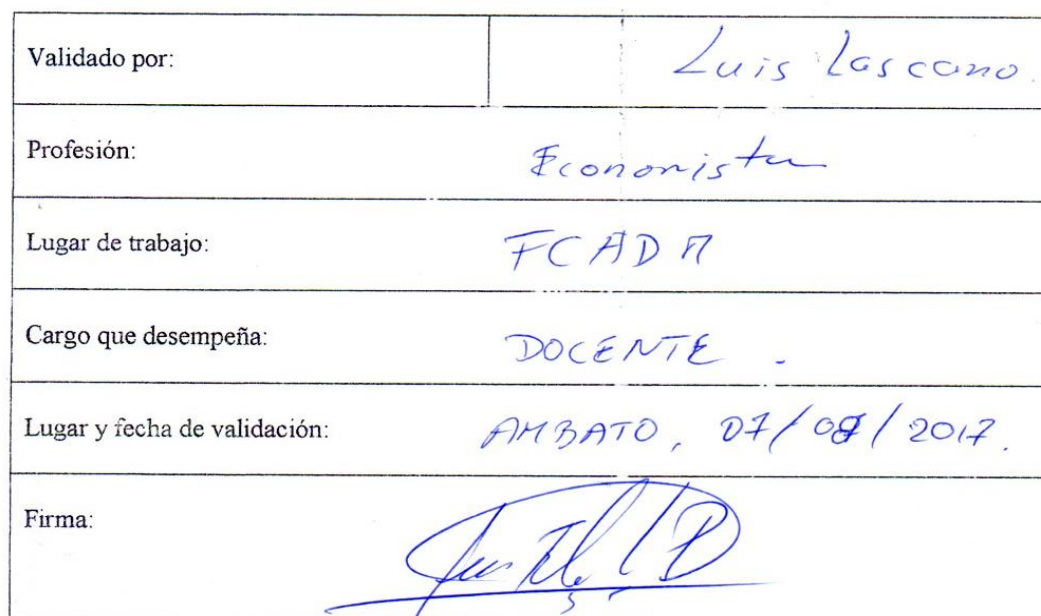 Validado por: Luis Lascano.
Profesión: Economista
Lugar de trabajo: FCADM
Cargo que desempeña: DOCENTE.
Lugar y fecha de validación: AMBATO, 07/ /2017.
Firma: